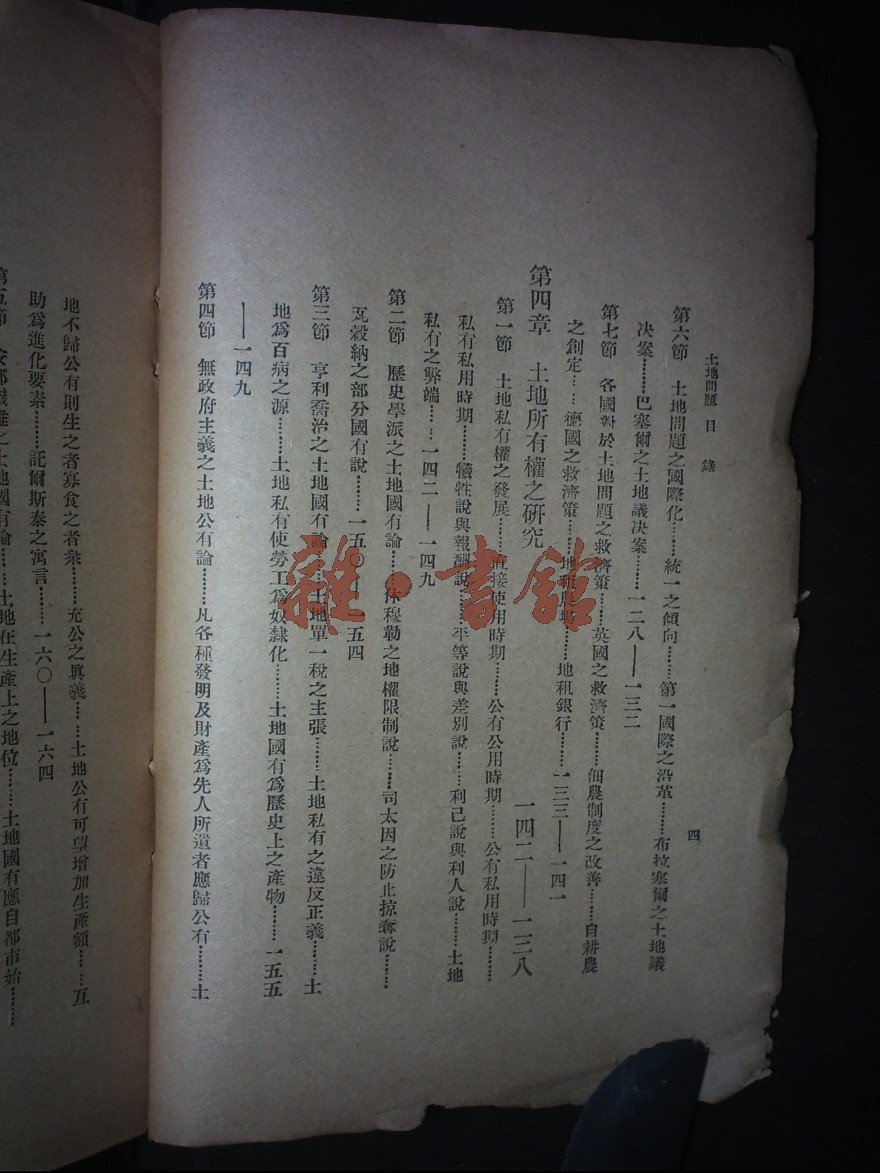 土地問題 目錄
四
第六節 土地問題之國際化……統一之傾向……第一國際之沿革……布拉塞爾之土地議
決案……巴塞爾之土地議決案……一二八——一三二
第七節 各國對於土地問題之救濟策……英國之救濟策……佃農制度之改善……自耕農
之創定……德國之救濟策……地租銀行……一三三——一四一
第四章 土地所有權之硏究 一四二——一三八
第一節 土地私有權之發展……直接使用時期……公有公用時期……公有私用時期……
私有私用時期……犧牲說與報酬說……平等說與差別說……利己說與利人說……土地
私有之弊端……一四二——一四九
第二節 歷史學派之土地國有論……休穆勒之地權限制說……司太因之防止掠奪說……
瓦穀納之部分國有說……一五〇——一五四
第三節 亨利喬治之土地國有論……土地單一稅之主張……土地私有之違反正義……土
地爲百病之源……土地私有使勞工爲奴隸化……土地國有爲歷史上之產物……一五五
——一四九
第四節 無政府主義之土地公有論……凡各種發明及財產爲先人所遺者應歸公有……土
地不歸公有則生之者寡食之者衆……充公之眞義……土地公有可望增加生產額……互
助爲進化要素……託爾斯泰之寓言……一六〇——一六四
第五節 之土地國有論……土地在生產上之地位……土地國有應自都市始……
雜·書館